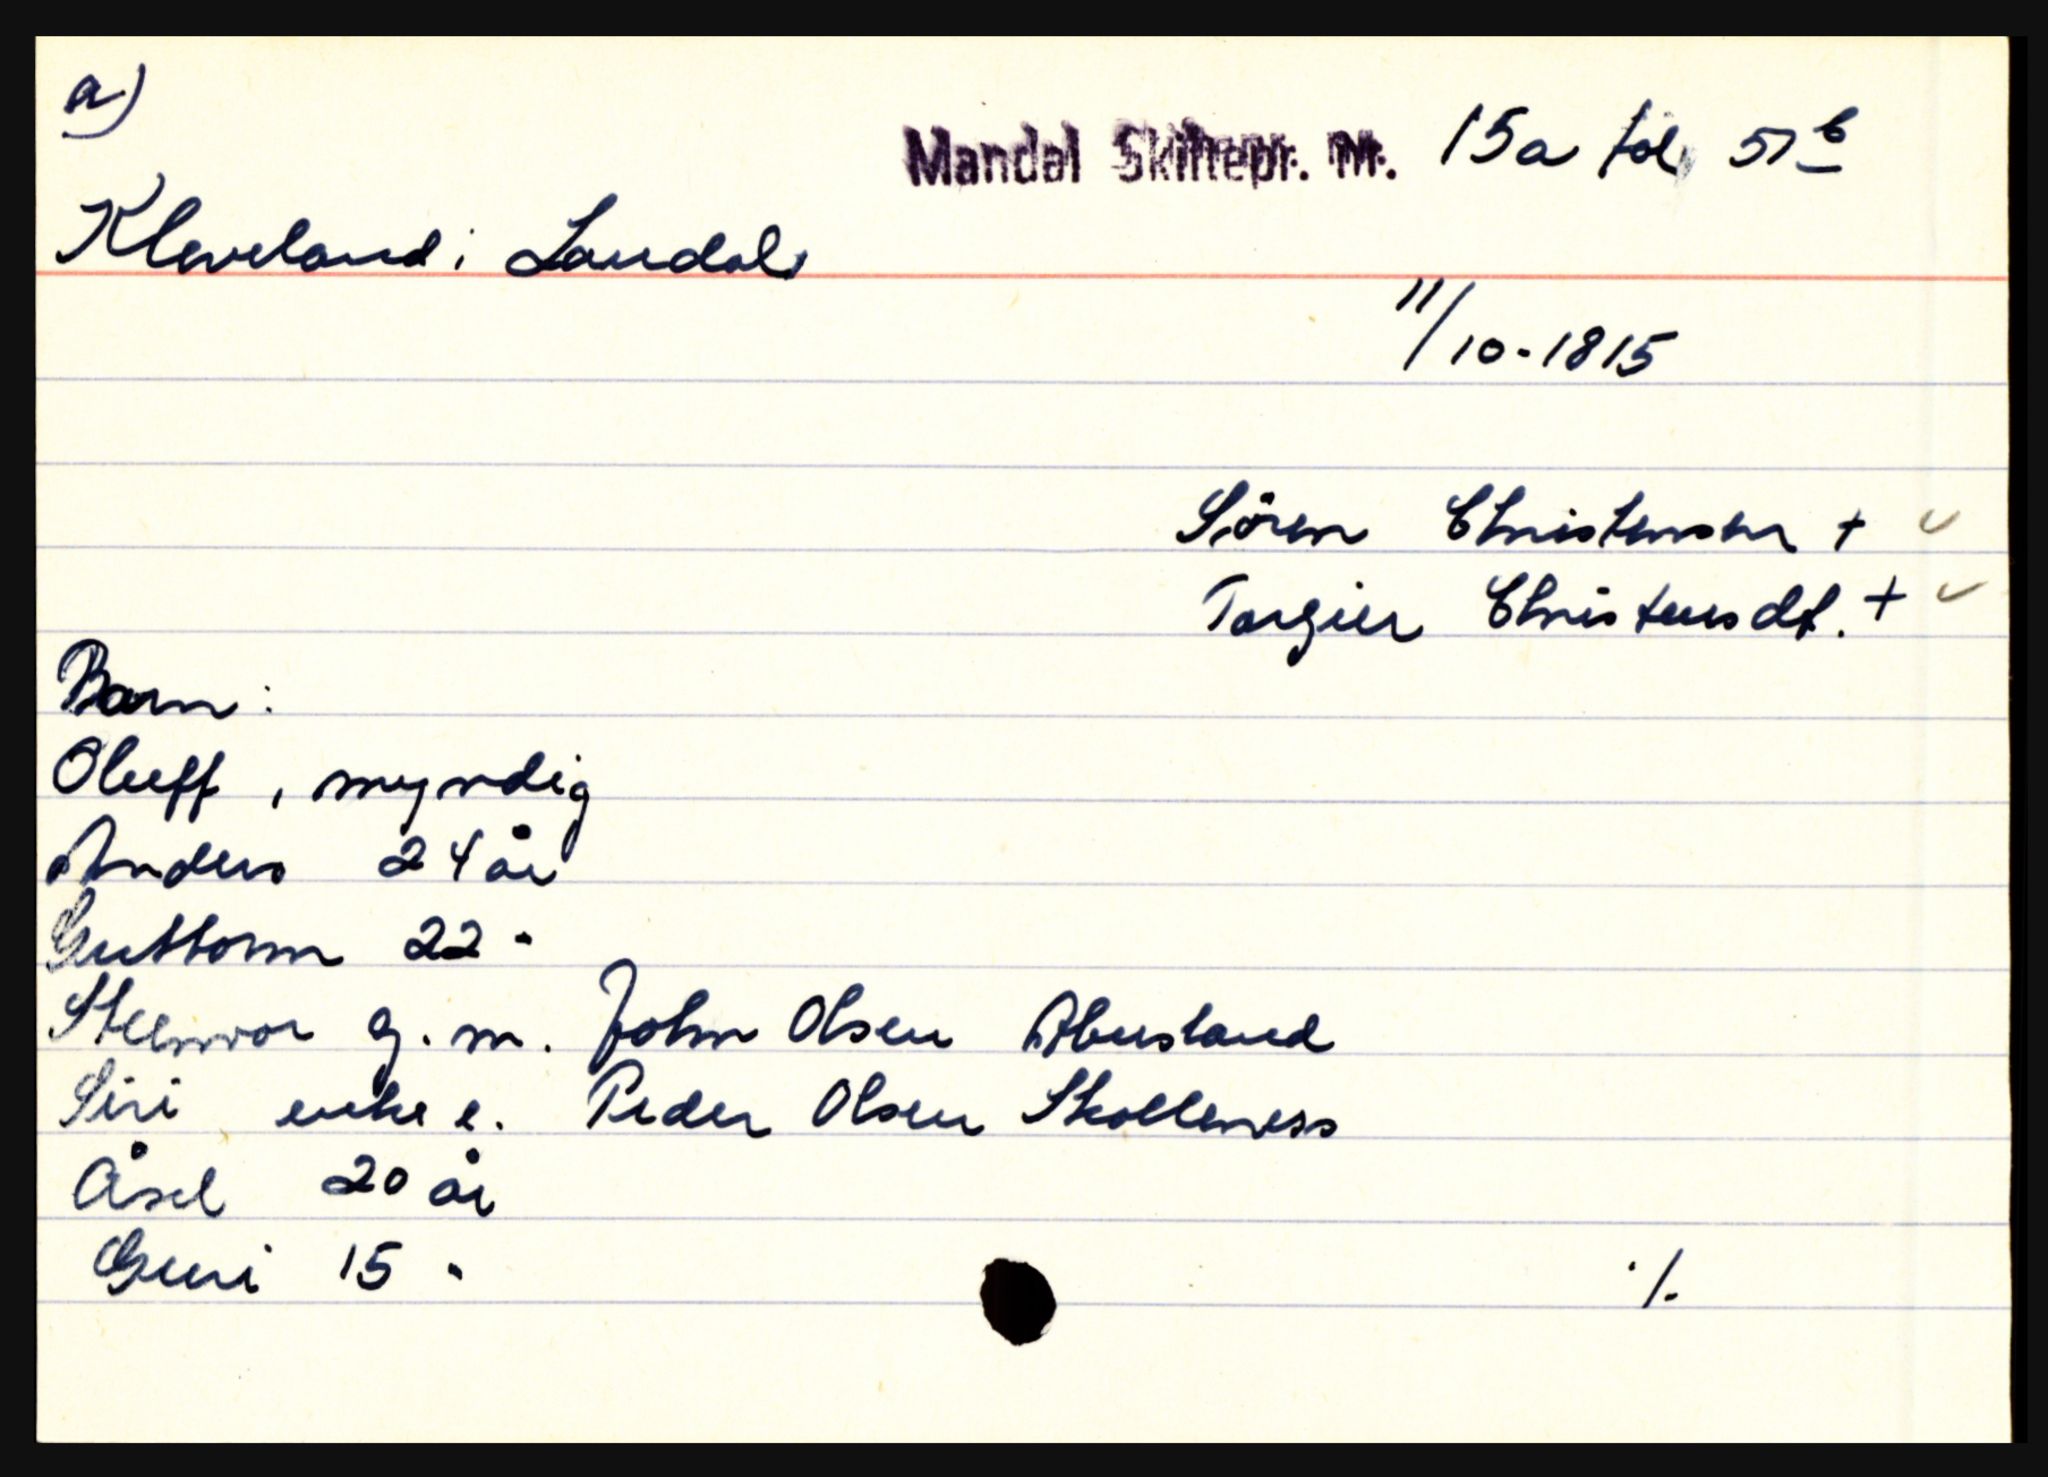 a)
Mandal Skiftepr. nr. 15a fol. 57 b
Kleveland i Laudal
11/10-1815
Sören Christensen +
Torgier Christensdt. +
Barn:
Oluff, myndig
Anders 24 år
Guttorm 22 "
Steenvor g. m. John Olsen Abusland
Siri enke e. Peder Olsen Skolleness
Åsel 20 år
Guri 15 "
./.